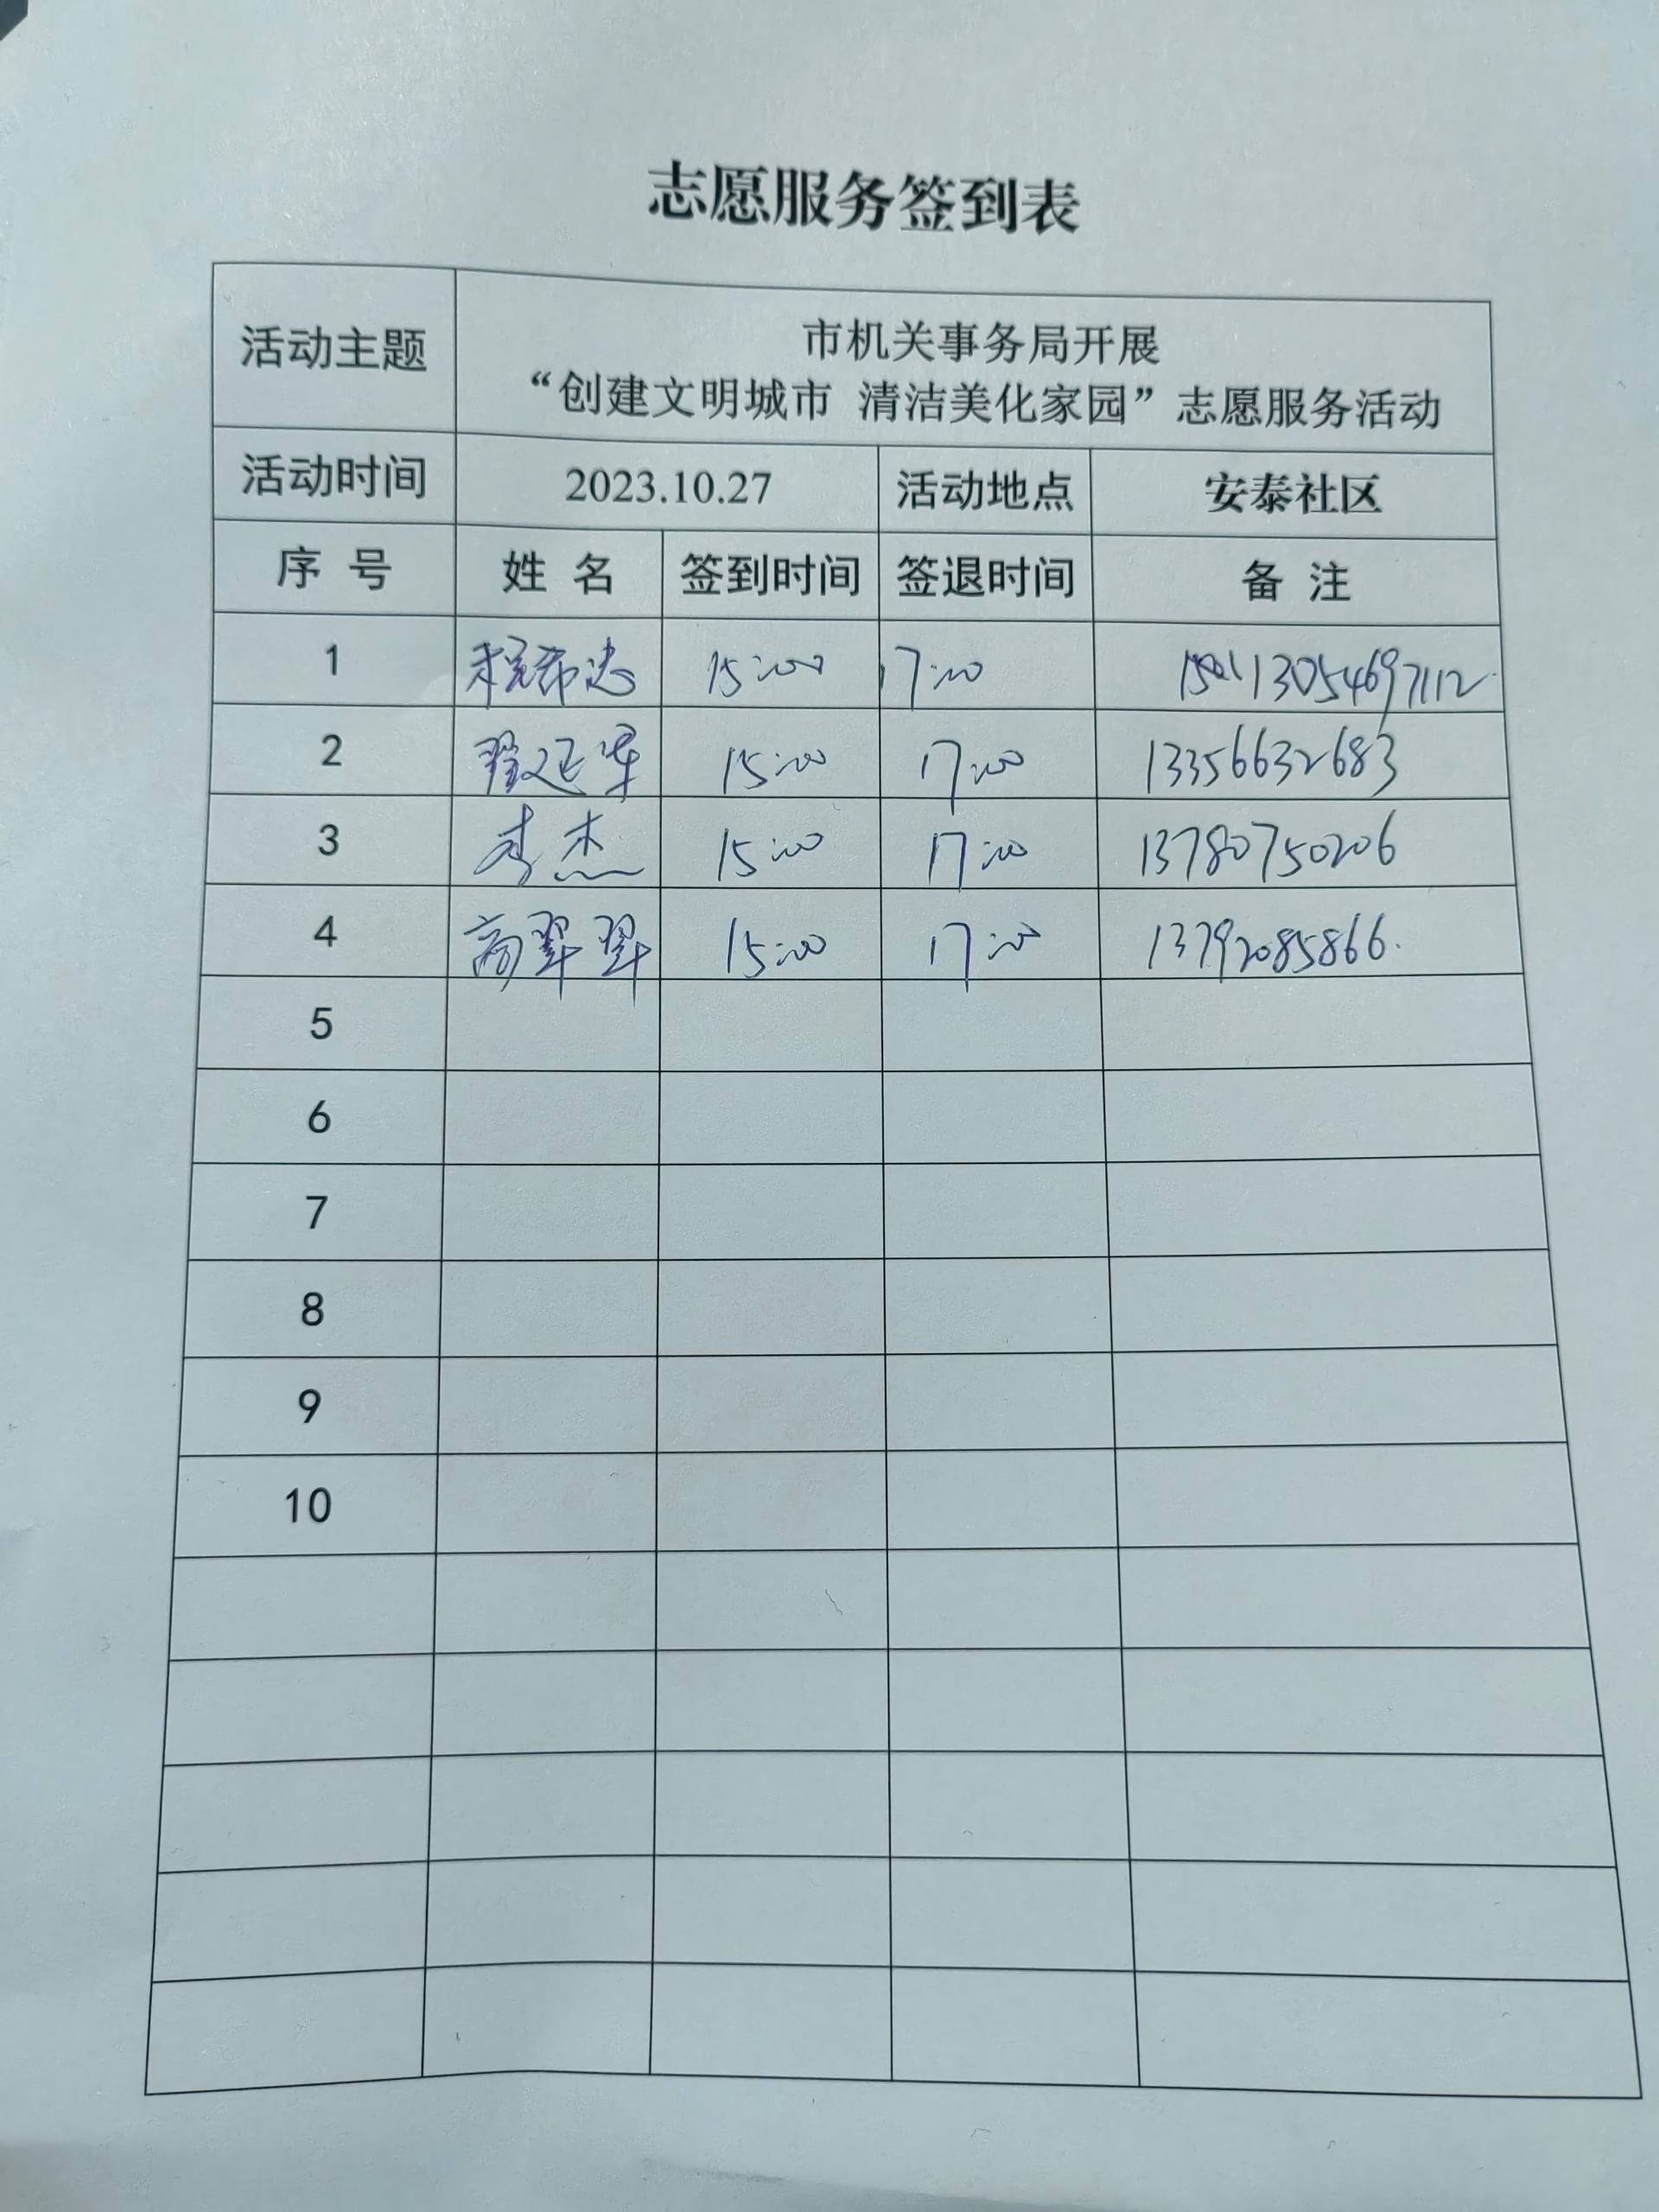 志愿服务签到表
活动主题
市机关事务局开展
“创建文明城市 清洁美化家园”志愿服务活动
活动时间 2023.10.27 活动地点 安泰社区
序 号 姓 名 签到时间 签退时间 备 注
1 15:00 17:00 13054697112
2 翟延军 15:00 17:00 13356632683
3 李杰 15:00 17:00 13780750206
4 15:00 17:00 13792085866.
5
6
7
8
9
10